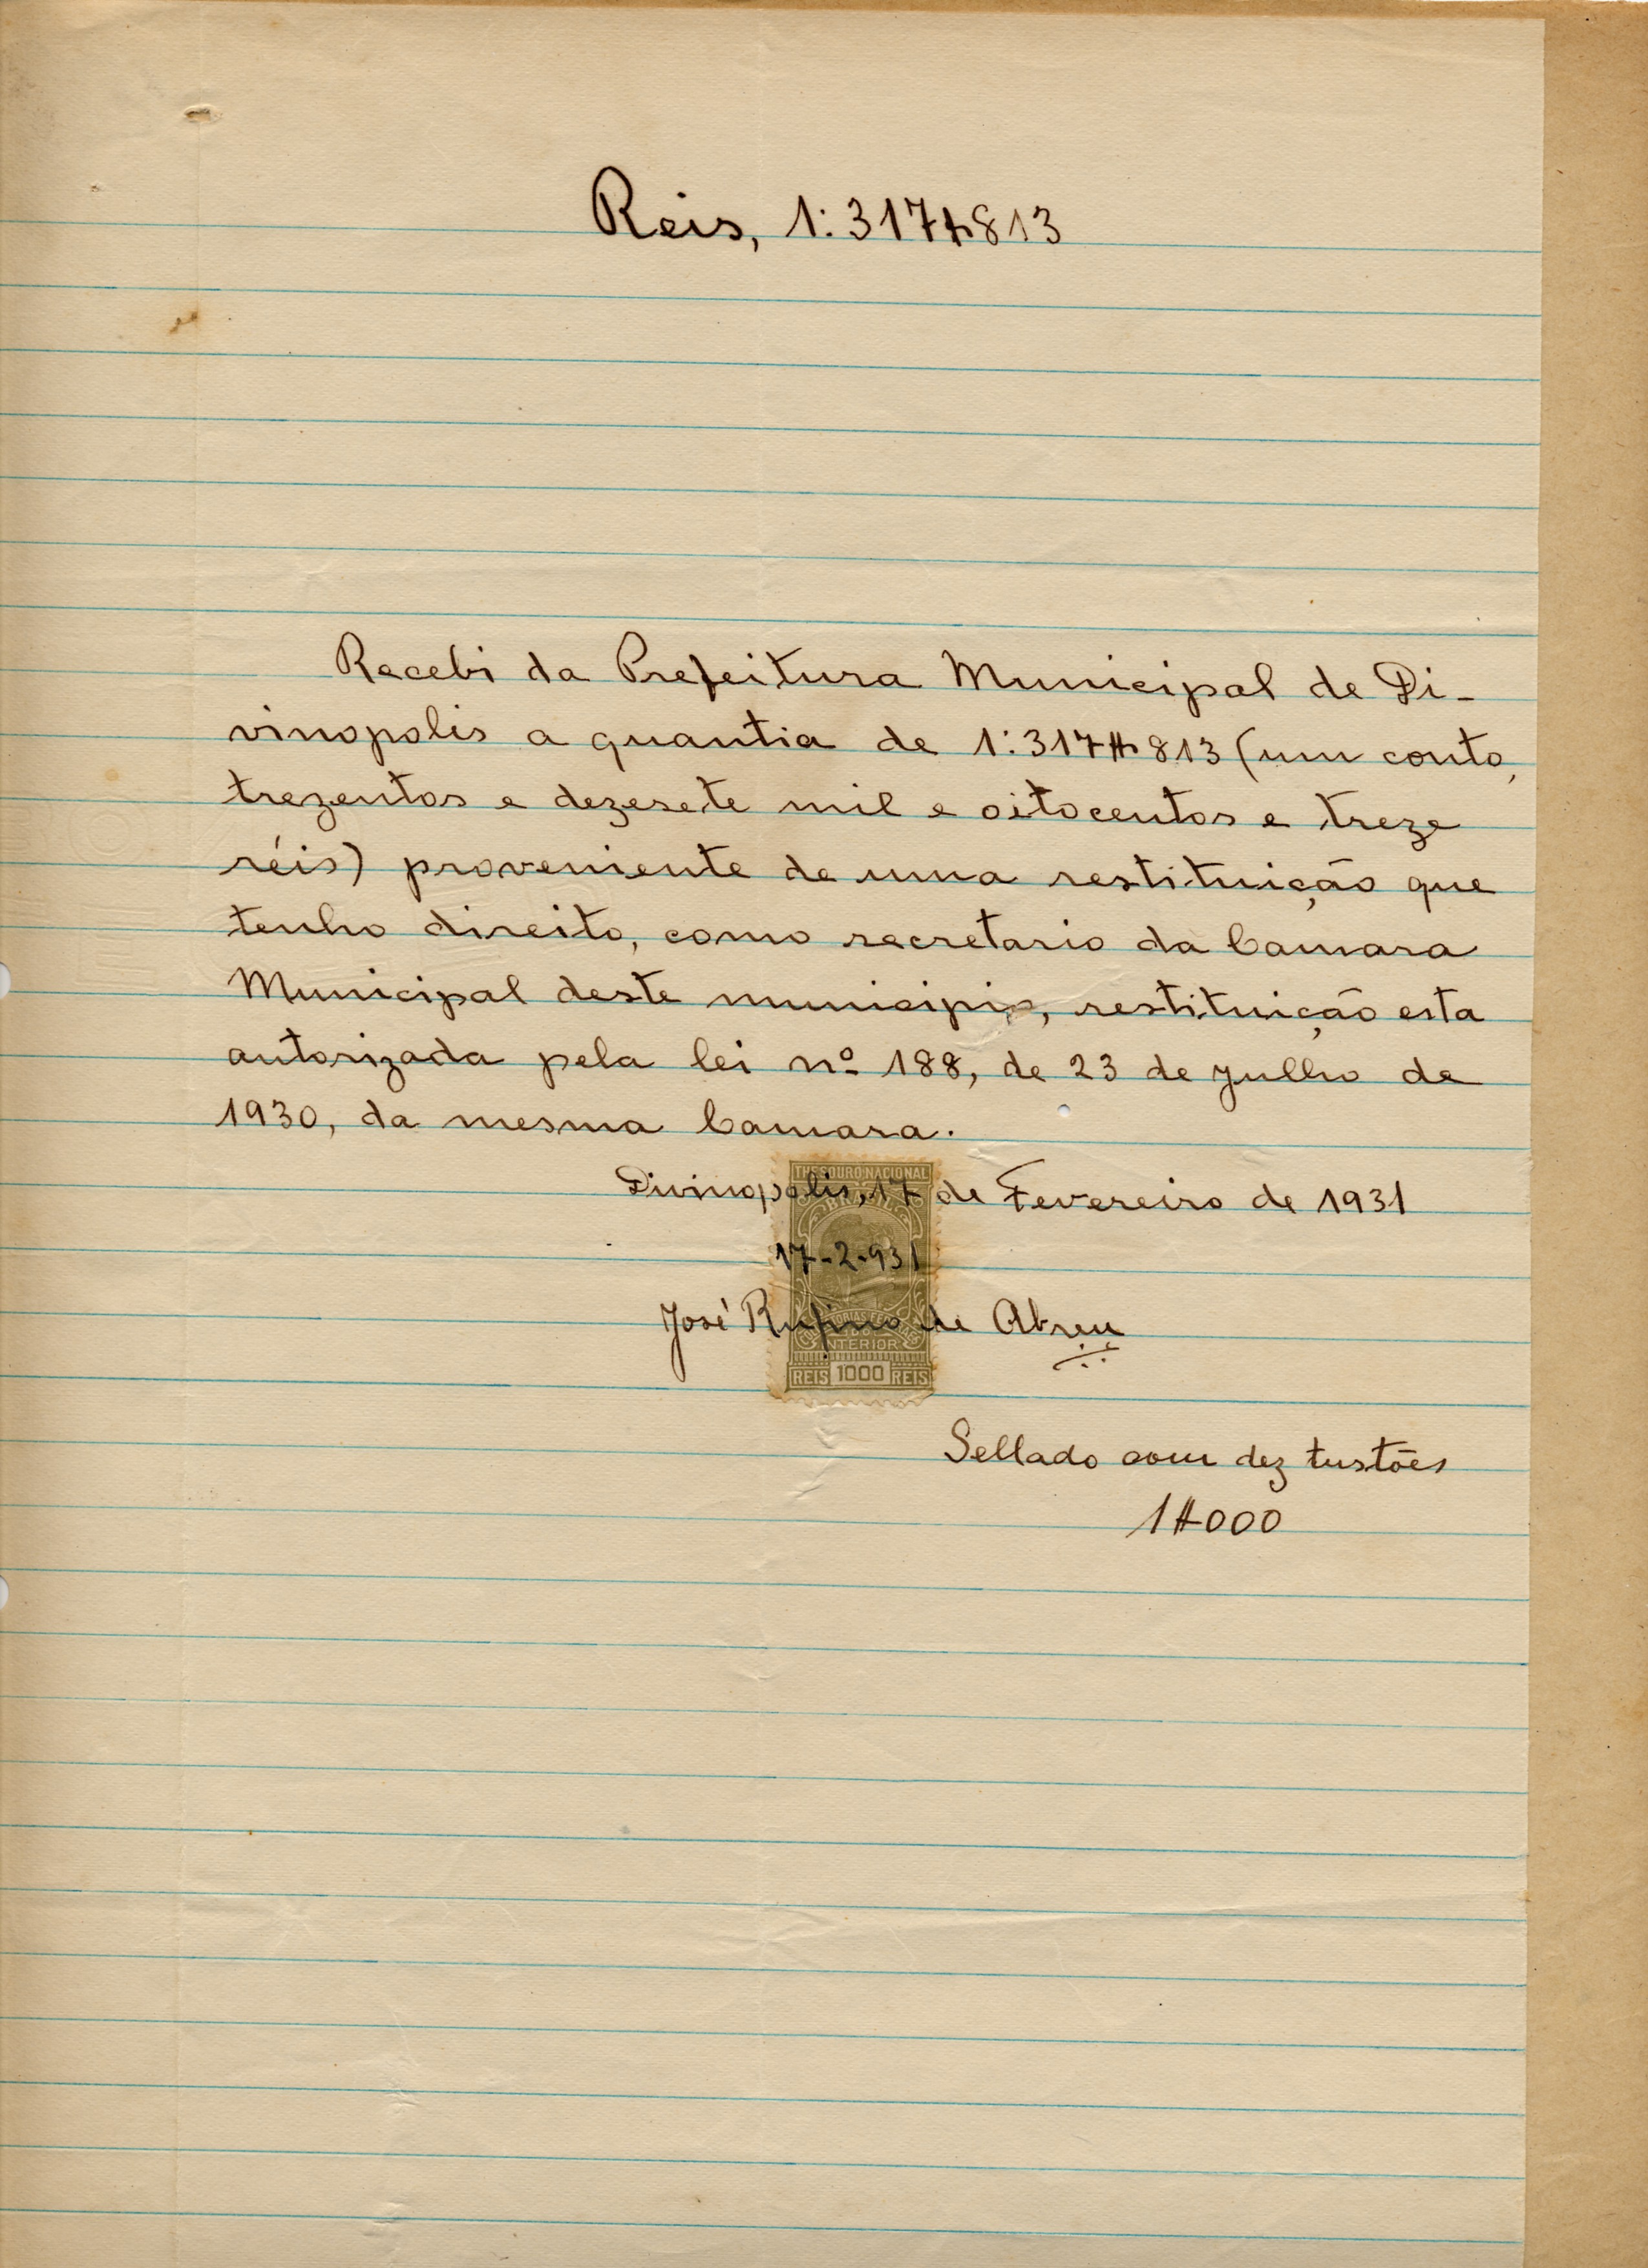 Reis, 1:317$813
Recebi da Prefeitura Municipal de Di-
vinopolis a quantia de 1:317$813 (um conto,
trezentos e dezesete mil e oitocentos e treze
réis) proveniente de uma restituição que
tenho direito, como secretario da Camara
Municipal deste municipio, restituição esta
autorizada pela lei nº 188, de 23 de Julho de
1930, da mesma Camara.
THESOURO NACIONAL
Divinopolis, 17 de Fevereiro de 1931
BRASIL
17-2-931
José Rufino de Abreu
INTERIOR
REIS 1000 REIS
Sellado com dez tustões
1$000